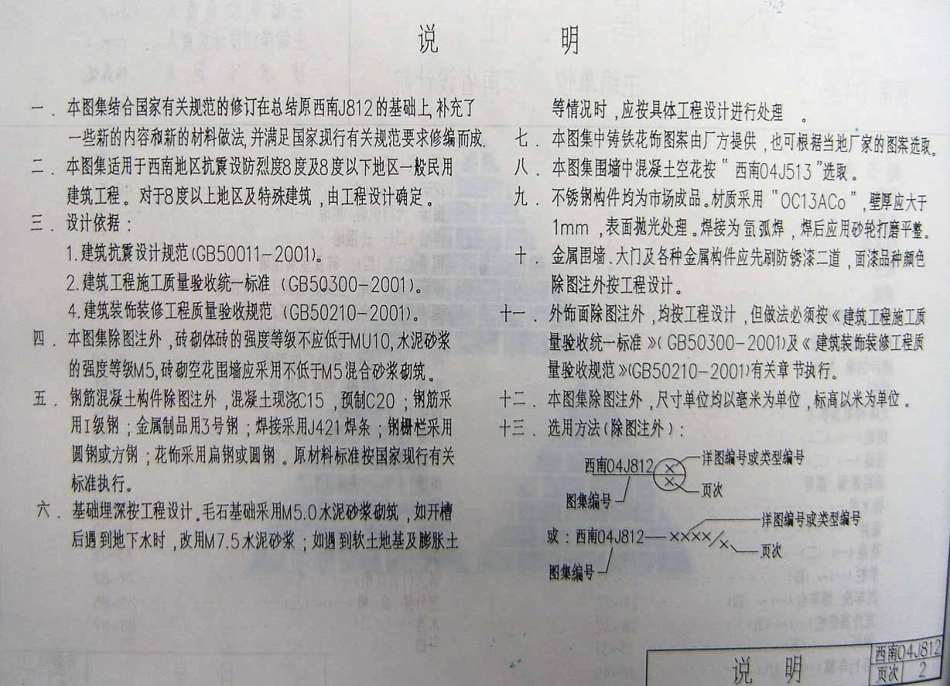 说 明
一．本图集结合国家有关规范的修订在总结原西南J812的基础上,补充了
一些新的内容和新的材料做法,并满足国家现行有关规范要求修编而成.
二．本图集适用于西南地区抗震设防烈度8度及8度以下地区一般民用
建筑工程。对于8度以上地区及特殊建筑,由工程设计确定。
三．设计依据:
1.建筑抗震设计规范(GB50011-2001)。
2.建筑工程施工质量验收统一标准(GB50300-2001)。
4.建筑装饰装修工程质量验收规范(GB50210-2001)。
四．本图集除图注外,砖砌体砖的强度等级不应低于MU10,水泥砂浆
的强度等级M5,砖砌空花围墙应采用不低于M5混合砂浆砌筑。
五．钢筋混凝土构件除图注外,混凝土现浇C15,预制C20;钢筋采
用I级钢;金属制品用3号钢;焊接采用J421焊条;钢栅栏采用
圆钢或方钢;花饰采用扁钢或圆钢。原材料标准按国家现行有关
标准执行。
六．基础埋深按工程设计.毛石基础采用M5.0水泥砂浆砌筑,如开槽
后遇到地下水时,改用M7.5水泥砂浆;如遇到软土地基及膨胀土
等情况时,应按具体工程设计进行处理。
七．本图集中铸铁花饰图案由厂方提供,也可根据当地厂家的图案选取。
八．本图集围墙中混凝土空花按“西南04J513”选取。
九．不锈钢构件均为市场成品。材质采用“OC13ACo”,壁厚应大于
1mm,表面抛光处理。焊接为氩弧焊,焊后应用砂轮打磨平整。
十．金属围墙、大门及各种金属构件应先刷防锈漆二道,面漆品种颜色
除图注外按工程设计。
十一．外饰面除图注外,均按工程设计,但做法必须按《建筑工程施工质
量验收统一标准》(GB50300-2001)及《建筑装饰装修工程质
量验收规范》(GB50210-2001)有关章节执行。
十二．本图集除图注外,尺寸单位均以毫米为单位,标高以米为单位。
十三．选用方法(除图注外):
西南04J812 × × 详图编号或类型编号
图集编号 页次
或:西南04J812—××××/× 详图编号或类型编号
图集编号 页次
说 明
西南04J812
页次 2